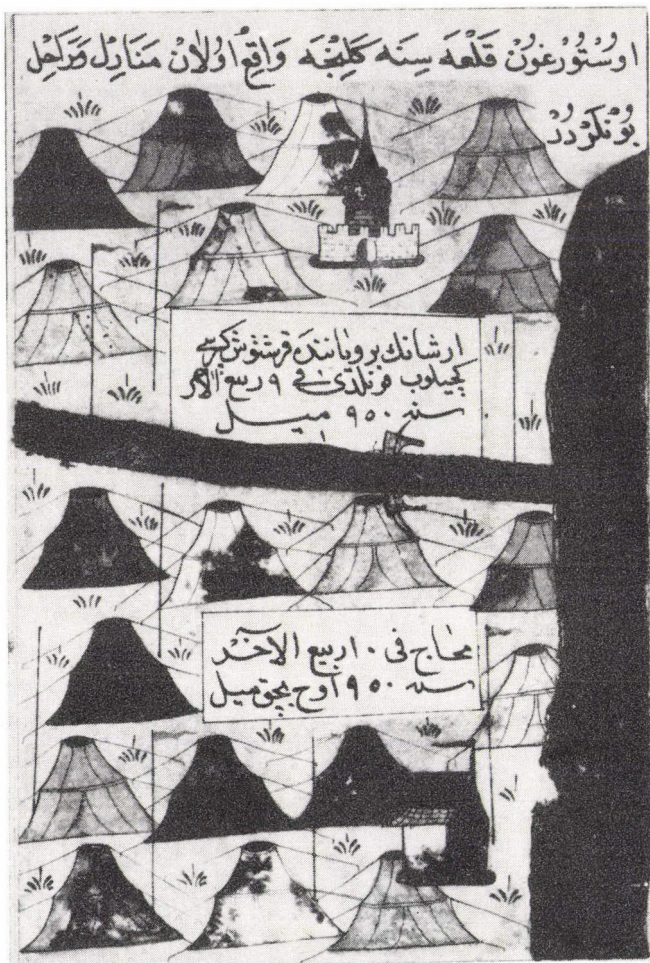 اوُسْتوُرْغوُنْ قَلْعَه سِنَه كَلِنْجَه وَاقِعْ اوُلَانْ مَنَازِلْ وَمَرَاحِلْ
بوُنْلَرْدُرْ
ارشانك برو ياننده كرسى
كچيلوب قونلدى فى ٩ ربيع الآخر
سنه ٩٥٠ ميل
١
محاج فى ١٠ ربيع الآخر
سنه ٩٥٠ اوج بچق ميل